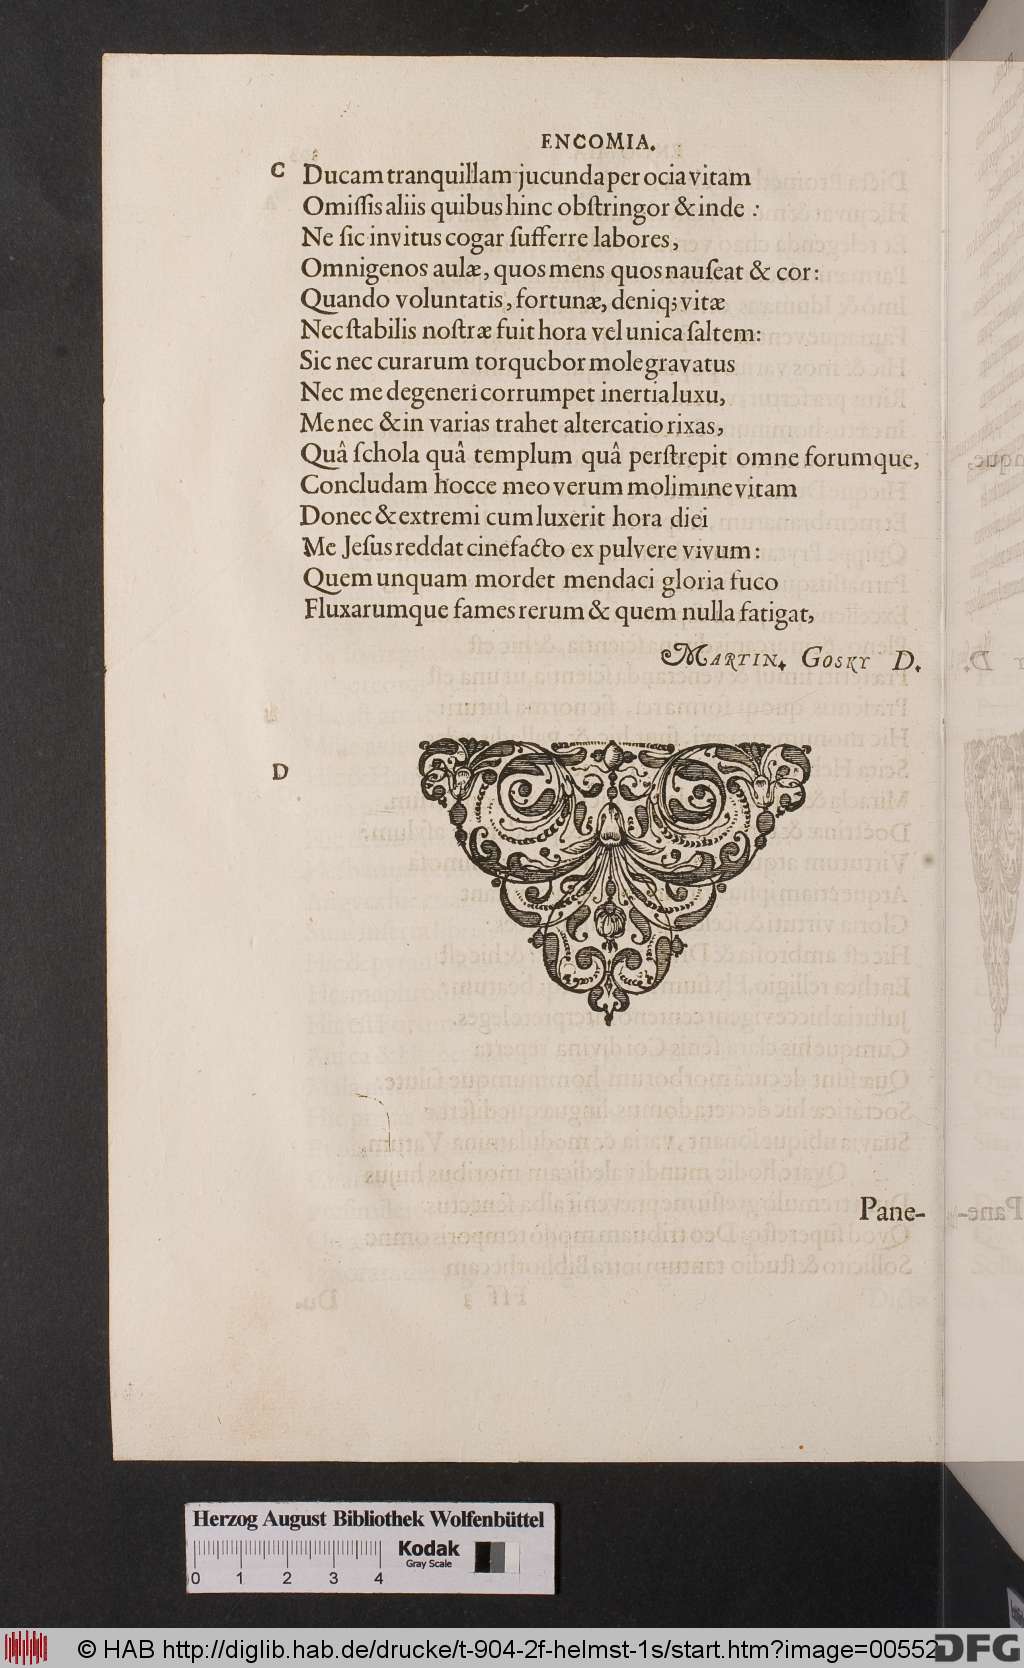 ENCOMIA.
C Ducam tranquillam jucunda per ocia vitam
Omiſſis aliis quibus hinc obſtringor & inde :
Ne ſic invitus cogar ſufferre labores,
Omnigenos aulæ, quos mens quos nauſeat & cor:
Quando voluntatis, fortunæ, deniq; vitæ
Nec ſtabilis noſtræ fuit hora vel unica ſaltem:
Sic nec curarum torquebor mole gravatus
Nec me degeneri corrumpet inertia luxu,
Me nec & in varias trahet altercatio rixas,
Quâ ſchola quâ templum quâ perſtrepit omne forumque,
Concludam hocce meo verum molimine vitam
Donec & extremi cum luxerit hora diei
Me Jeſus reddat cinefacto ex pulvere vivum:
Quem unquam mordet mendaci gloria fuco
Fluxarumque fames rerum & quem nulla fatigat,
MARTIN. GOSKY D.
D
Pane-
Herzog August Bibliothek Wolfenbüttel
Kodak
Gray Scale
0 1 2 3 4
© HAB http://diglib.hab.de/drucke/t-904-2f-helmst-1s/start.htm?image=00552
DFG